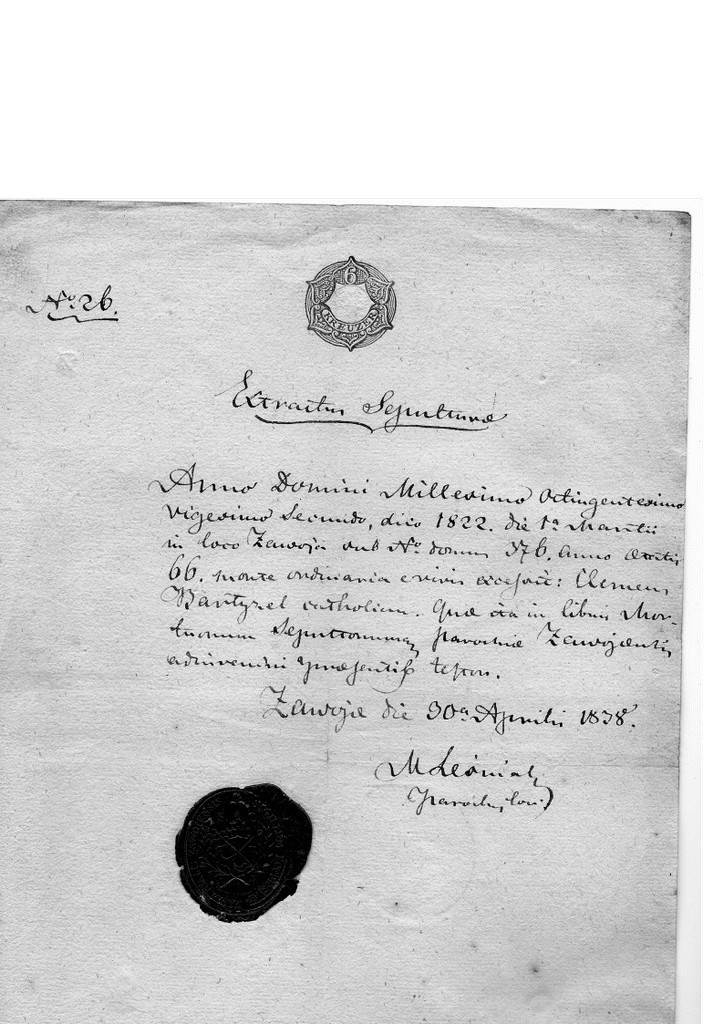 6
KREUZER
No 26.
Extractus Sepulturæ
Anno Domini Millesimo Octingentesimo
Vigesimo Secundo, dico 1822. die 1a Martii
in loco Zawoja sub No domus 376. anno ætatis
66. morte ordinaria e vivis Clemens
Bartyzel catholicus. Quæ ita in libris Mor-
tuorum Sepultorumq parochiæ Zawojensis
adinveniri præsentiß testor.
Zawoja die 30a Aprilis 1838.
M Leśniak
Parochus loci